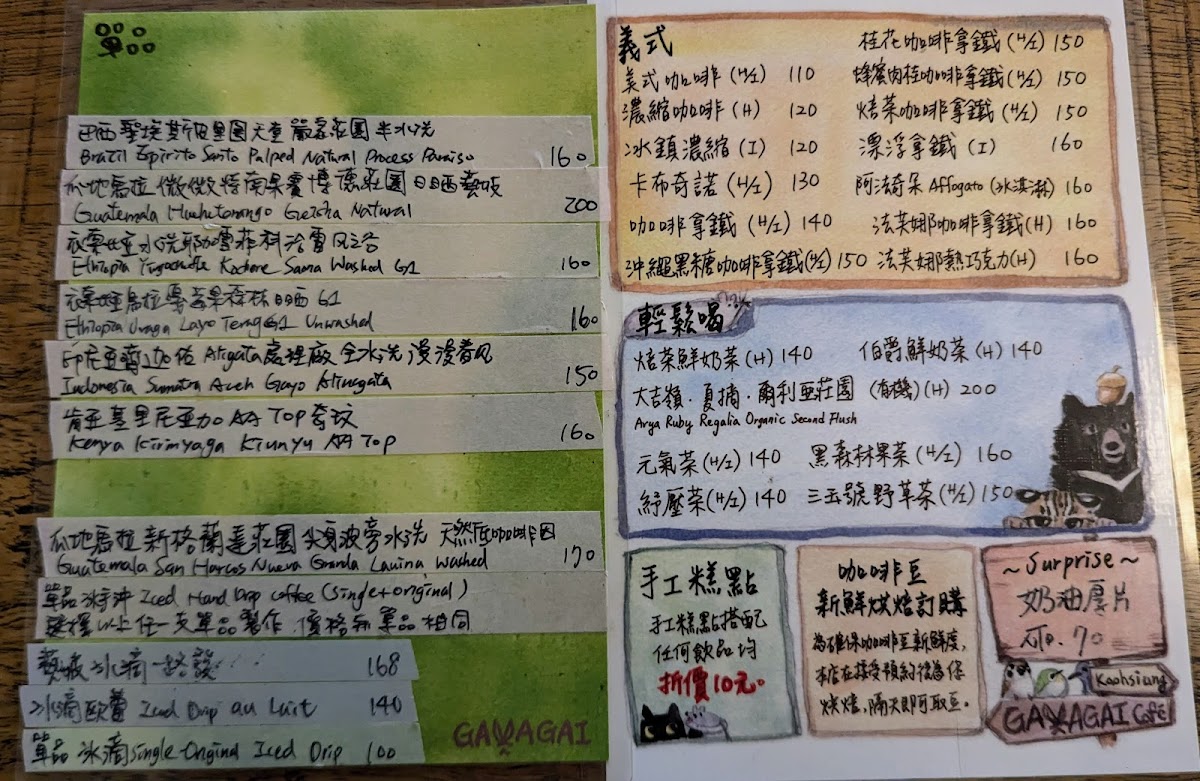 單品
Brazil Espirito Santo Pulped Natural Process Paraiso 160
Guatemala Huehuetenango Geisha Natural 200
Ethiopia Yirgacheffe Kochere Sama Washed G1 160
G1
Ethiopia Uraga Layo Teraga G1 Unwashed 160
處理廠 全水洗 漫漫春风
Indonesia Sumatra Aceh Gayo Atugata 150
AA TOP
Kenya Kirinyaga Kiunyu AA TOP 160
瓜地馬拉 新格蘭達莊園 尖身波旁水洗 天然低咖啡因
Guatemala San Marcos Nueva Granda Laurina Washed 170
單品冰手沖 Iced Hand Drip Coffee (Single original)
選擇以上任一支單品製作,價格和單品相同
藝妓冰滴一路發 168
冰滴歐蕾 Iced Drip au Lait 140
單品冰滴 Single Original Iced Drip 100
GAVAGAI
義式
美式咖啡 (H/I) 110
濃縮咖啡 (H) 120
冰鎮濃縮 (I) 120
卡布奇諾 (H/I) 130
咖啡拿鐵 (H/I) 140
沖繩黑糖咖啡拿鐵 (H/I) 150
桂花咖啡拿鐵 (H/I) 150
蜂蜜肉桂咖啡拿鐵 (H/I) 150
焙茶咖啡拿鐵 (H/I) 150
漂浮拿鐵 (I) 160
阿法奇朵 Affogato (冰淇淋) 160
法芙娜咖啡拿鐵 (H) 160
法芙娜熱巧克力 (H) 160
輕鬆喝
焙茶鮮奶茶 (H) 140
伯爵鮮奶茶 (H) 140
大吉嶺・夏摘・爾利亞莊園 (有機) (H) 200
Arya Ruby Regalia Organic Second Flush
元氣茶 (H/I) 140
黑森林果茶 (H/I) 160
紓壓茶 (H/I) 140
三五號野草茶 (H/I) 150
手工糕點
手工糕點搭配
任何飲品均
折價10元。
咖啡豆
新鮮烘焙訂購
為確保咖啡豆新鮮度,
本店在接受預約後為您
烘焙,隔天即可取豆。
~Surprise~
奶油厚片
NT. 70
Kaohsiung
GAVAGAI Café